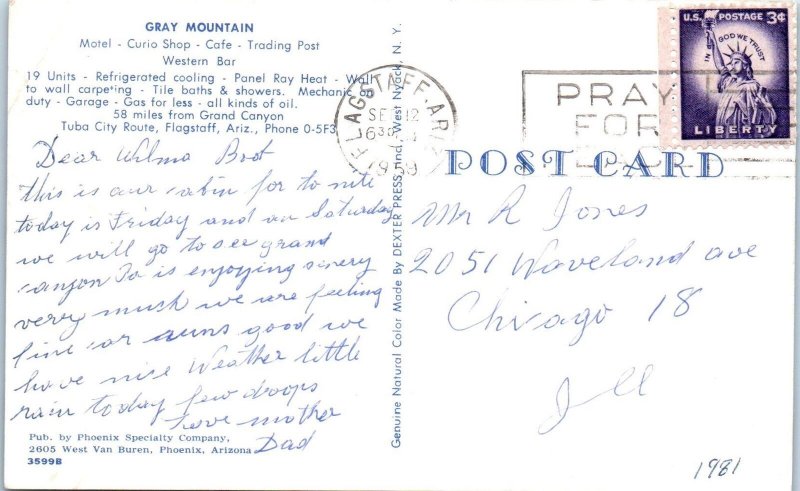 GRAY MOUNTAIN
Motel - Curio Shop - Cafe - Trading Post
Western Bar
19 Units - Refrigerated cooling - Panel Ray Heat - Wall
to wall carpeting - Tile baths & showers. Mechanic on
duty - Garage - Gas for less - all kinds of oil.
58 miles from Grand Canyon
Tuba City Route, Flagstaff, Ariz., Phone 0-5F3
Dear Wilma Bob
this is our cabin for to nite
today is Friday and on Saturday
we will go to see grand
canyon Pa is enjoying senery
verry mush we are feeling
fine car runs good we
have nice Weather little
rain today few drops
Love mother
Dad
Pub. by Phoenix Specialty Company,
2605 West Van Buren, Phoenix, Arizona
3599B
Genuine Natural Color Made By DEXTER PRESS, Ind., West Nyack, N. Y.
FLAGSTAFF, ARIZ.
SEP 12
630
1959
PRAY
FOR
U.S. POSTAGE 3¢
IN GOD WE TRUST
LIBERTY
POST CARD
Mr R Jones
2051 Waveland ave
Chicago 18
Ill
1981